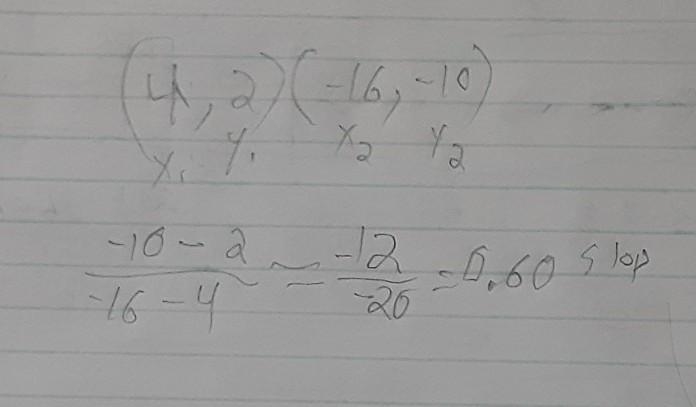 (4, 2) (-16, -10)
x₁ y₁ x₂ y₂
-10 - 2 / -16 - 4 = -12 / -20 = 0.60 slop